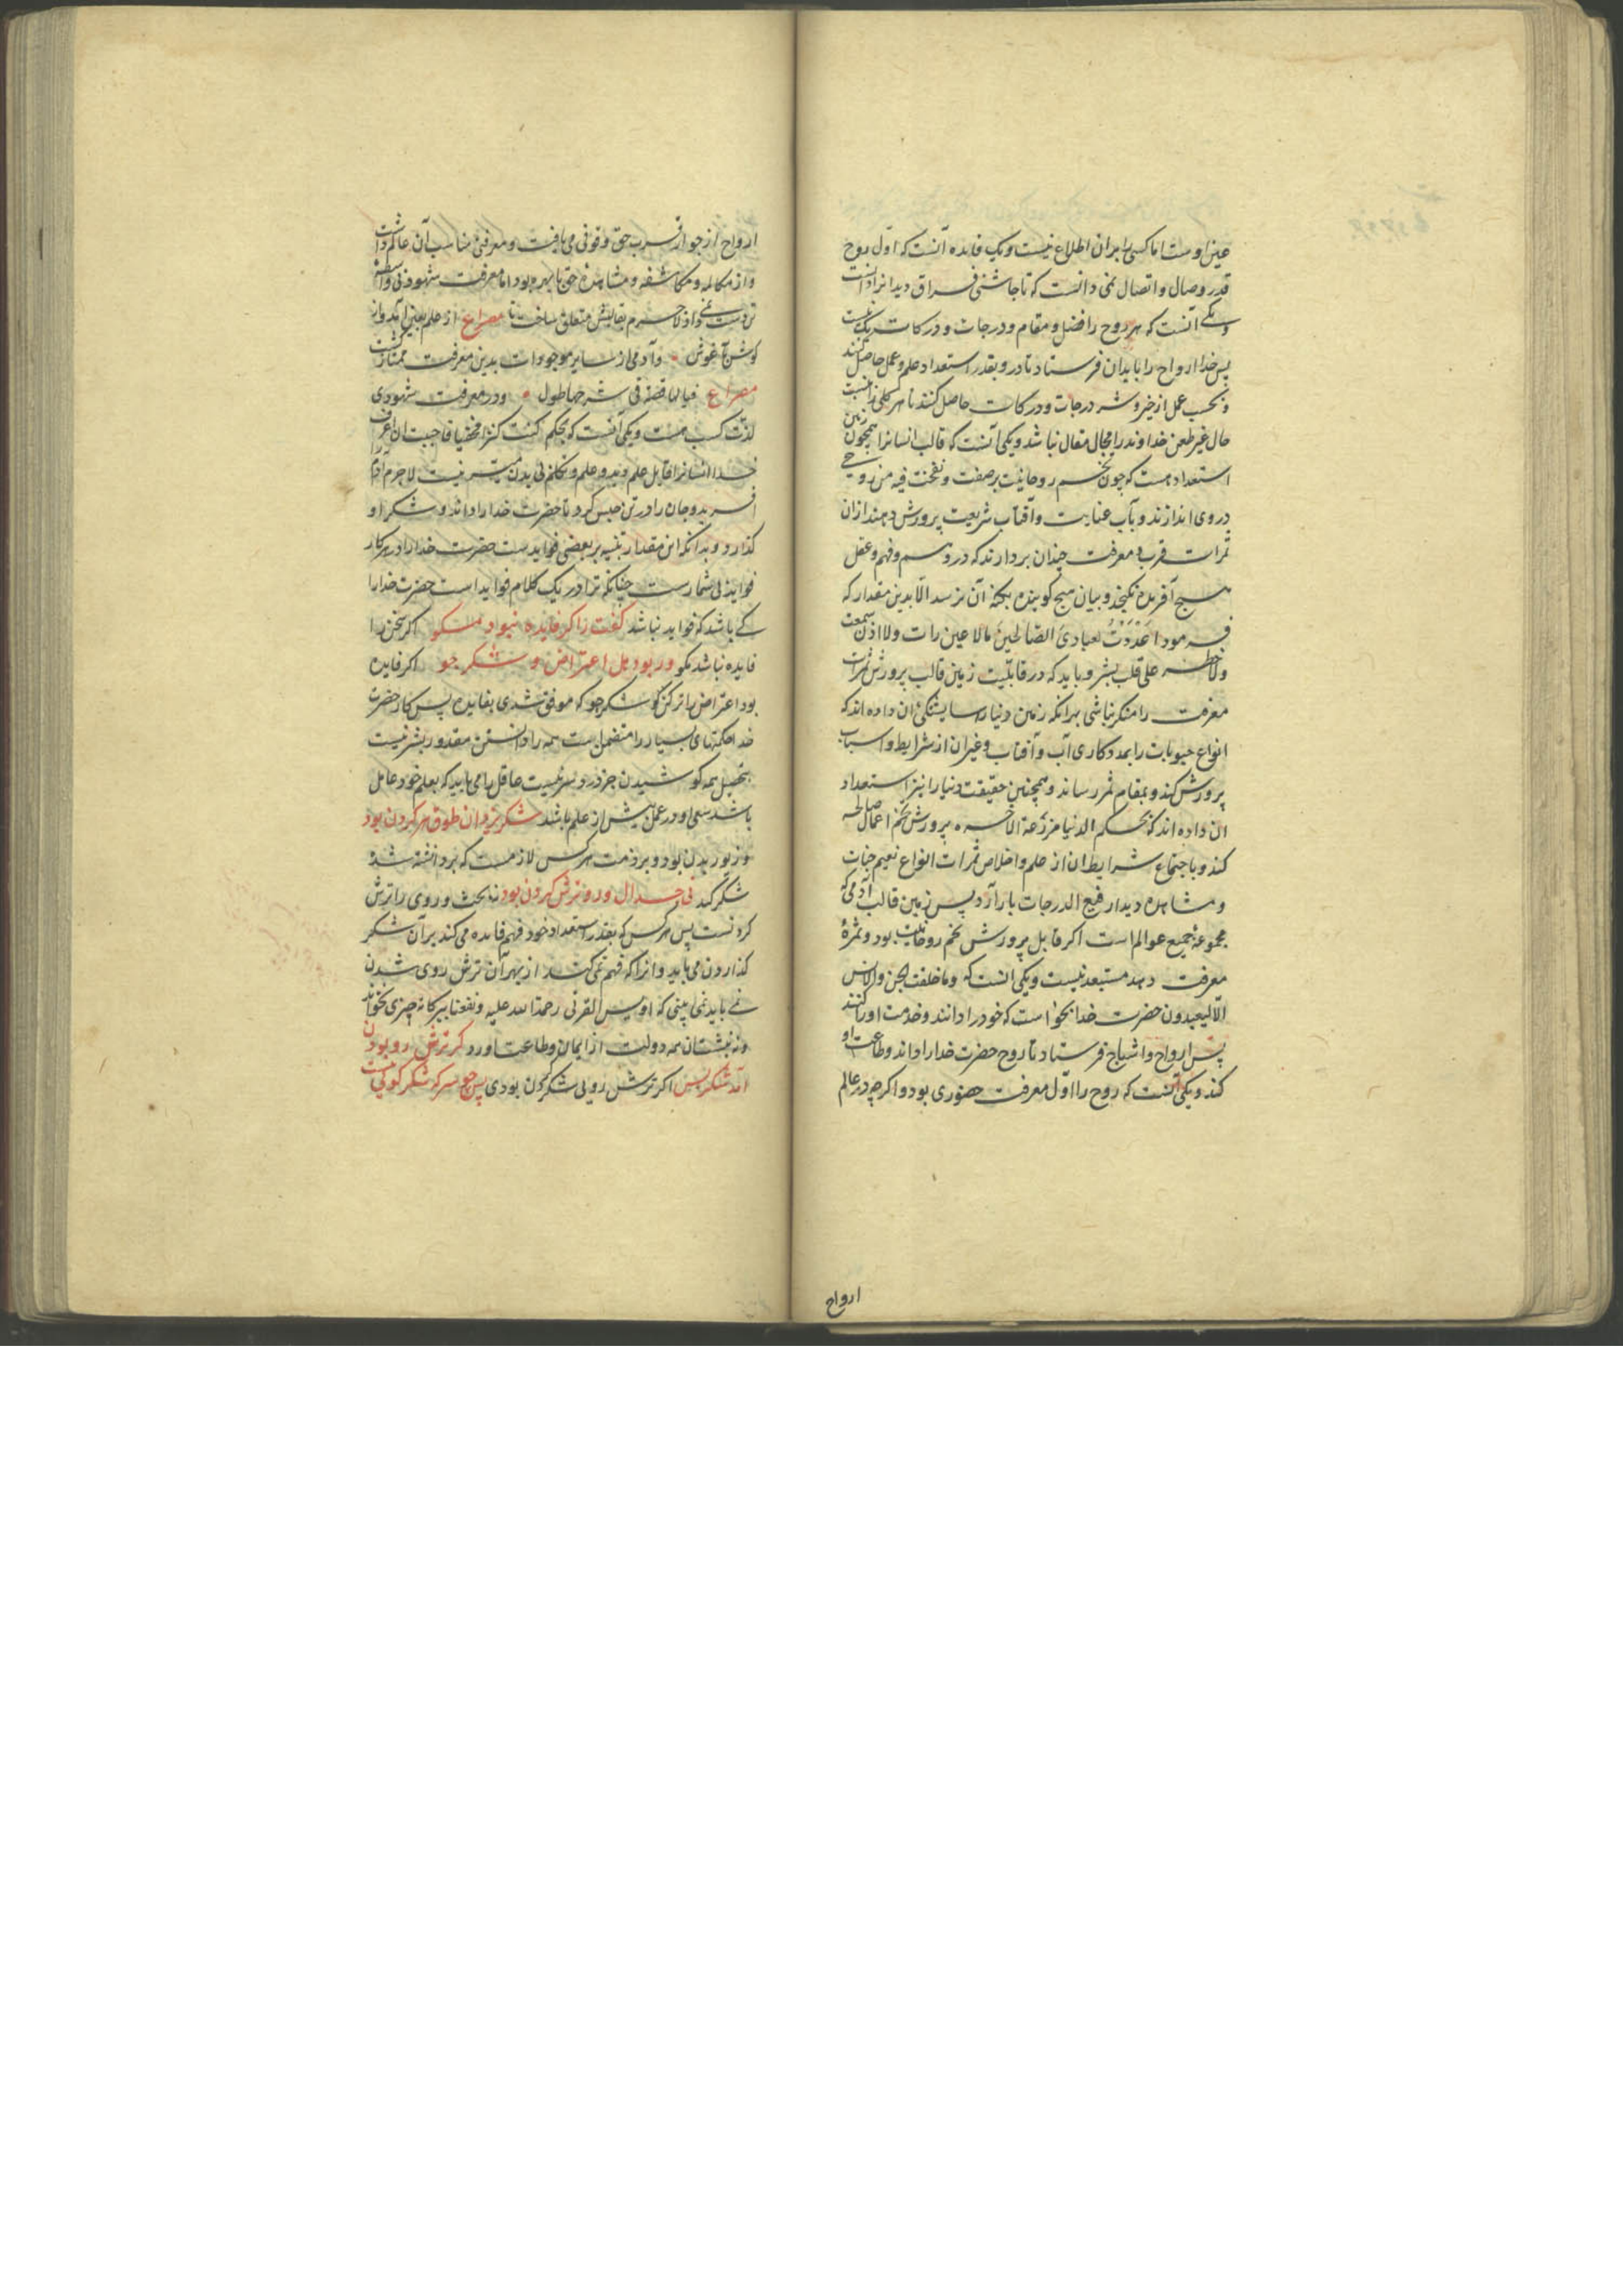 عین اوست اما کسی را بران اطلاع نیست و یک فایده آنست که اول روح
قدر وصال و اتصال نمی دانست که تا چاشنی فراق دید انرا دانست
و یکی آنست که هر روح را فضل و مقام و درجات و درکات یک نیست
پس خدا ارواح را بابدان فرستاد تا درو بقدر استعداد علم و عمل حاصل کنند
و بحسب عمل از خیر و شر درجات و درکات حاصل کنند تا هر کلی را نسبت
حال غیر طعن خداوند را مجال مقال نباشد و یکی آنست که قالب انسانرا همچون زمین
استعداد هست که چون تخم روحانیت بر صفت و نفخت فیه من روحی
در وی اندازند و بآب عنایت و آفتاب شریعت پرورش دهند از ان
ثمرات قرب و معرفت چندان بردارند که در وهم و فهم و عقل
هیچ آفریده نگنجد و بیان هیچ گوینده بکنه آن نرسد الا بدین مقدار که
فرمود اعددت لعبادی الصالحین مالا عین رات ولا اذن سمعت
ولا خطر علی قلب بشر و باید که در قابلیت زمین قالب پرورش ثمرات
معرفت را منکر نباشی بدانکه زمین دنیا را شایستگی ان داده اند که
انواع حبوبات را بمددکاری آب و آفتاب و غیران از شرایط و اسباب
پرورش کند و بمقام ثمر رساند و همچنین حقیقت دنیا را نیز استعداد
ان داده اند که بحکم الدنیا مزرعة الاخره پرورش تخم اعمال صالحه
کند و باجتماع شرایط ان از علم و اخلاص ثمرات انواع نعیم جنات
و مشاهده دیدار رفیع الدرجات بار آرد پس زمین قالب آدمی که
مجموعه جمیع عوالم است اکر قابل پرورش تخم روحانیت بود و ثمرهٔ
معرفت دهد مستبعد نیست و یکی انست که وما خلقت الجن والانس
الا لیعبدون حضرت خدا بخواست که خود را دانند و خدمت او را کنند
پس ارواح و اشباح فرستاد تا روح حضرت خدا را داند و طاعت او
کند و یکی آنست که روح را اول معرفت حضوری بود و اکرچه در عالم
ارواح
ارواح از جوار قرب حق وقوفی می یافت و معرفتی مناسب آن عالم داشت
و از مکالمه و مکاشفه و مشاهده حق با بهره بود اما معرفت شهودی بی واسطه
مصراع از علم بعین آمد و از
کوش بآغوش و آدمی از سایر موجودات بدین معرفت ممتاز کشت
مصراع فیا لها قصة فی شرحها طول و در معرفت شهودی
لذت کسب هست و یکی آنست که بحکم کنت کنزا مخفیا فاحببت ان اعرف
خدا انسانرا قابل علم و علم و تکلم بی بدن میسر نیست لاجرم آدم را
افرید و جان را در تن حبس کرد تا حضرت خدا را داند و شکر او
کذارد و بدانکه این مقدار تنبیه بر بعضی فوایدست حضرت خدا را در هر کار
فواید بی شمارست چنانکه ترا در یک کلام فوایداست حضرت خدا را
کی باشد که فواید نباشد کفت را کر فایده نبود مکو اکر سخن را
فایده نباشد مکو ور بود هل اعتراض و شکر جو اکر فایده
بود اعتراض را ترک کن و شکر جو که موفق شدی بفایده پس کار حضرت
خدا حکمتهای بسیار را متضمن است همه را دانستن مقدور بشر نیست
بتحصیل همه کوشیدن جز درد سر نیست عاقل را می باید که بعلم خود عامل
باشد سعی او در عمل بیش از علم باشد شکر یزدان طوق هر کردن بود
و زیور بدن بود و بر ذمت هر کس لازمست که بر دانسته شده
شکر کند نی جدال و رو ترش کردن بود نه بحث و روی را ترش
کردنست پس هر کس که بقدر استعداد خود فهم فایده می کند بر آن شکر
کذاردن می باید و انرا که فهم نمی کند از بهر آن ترش روی شدن
نمی باید نمی بینی که اویس القرنی رحمة الله علیه و نفعنا ببرکاته چیزی نخواند
و نه نبشت ان همه دولت از ایمان و طاعت اورد کر ترش رو بودن
آمد شکر پس اکر ترش رویی شکر کردن بودی پس چو سرکه شکر کویی نیست